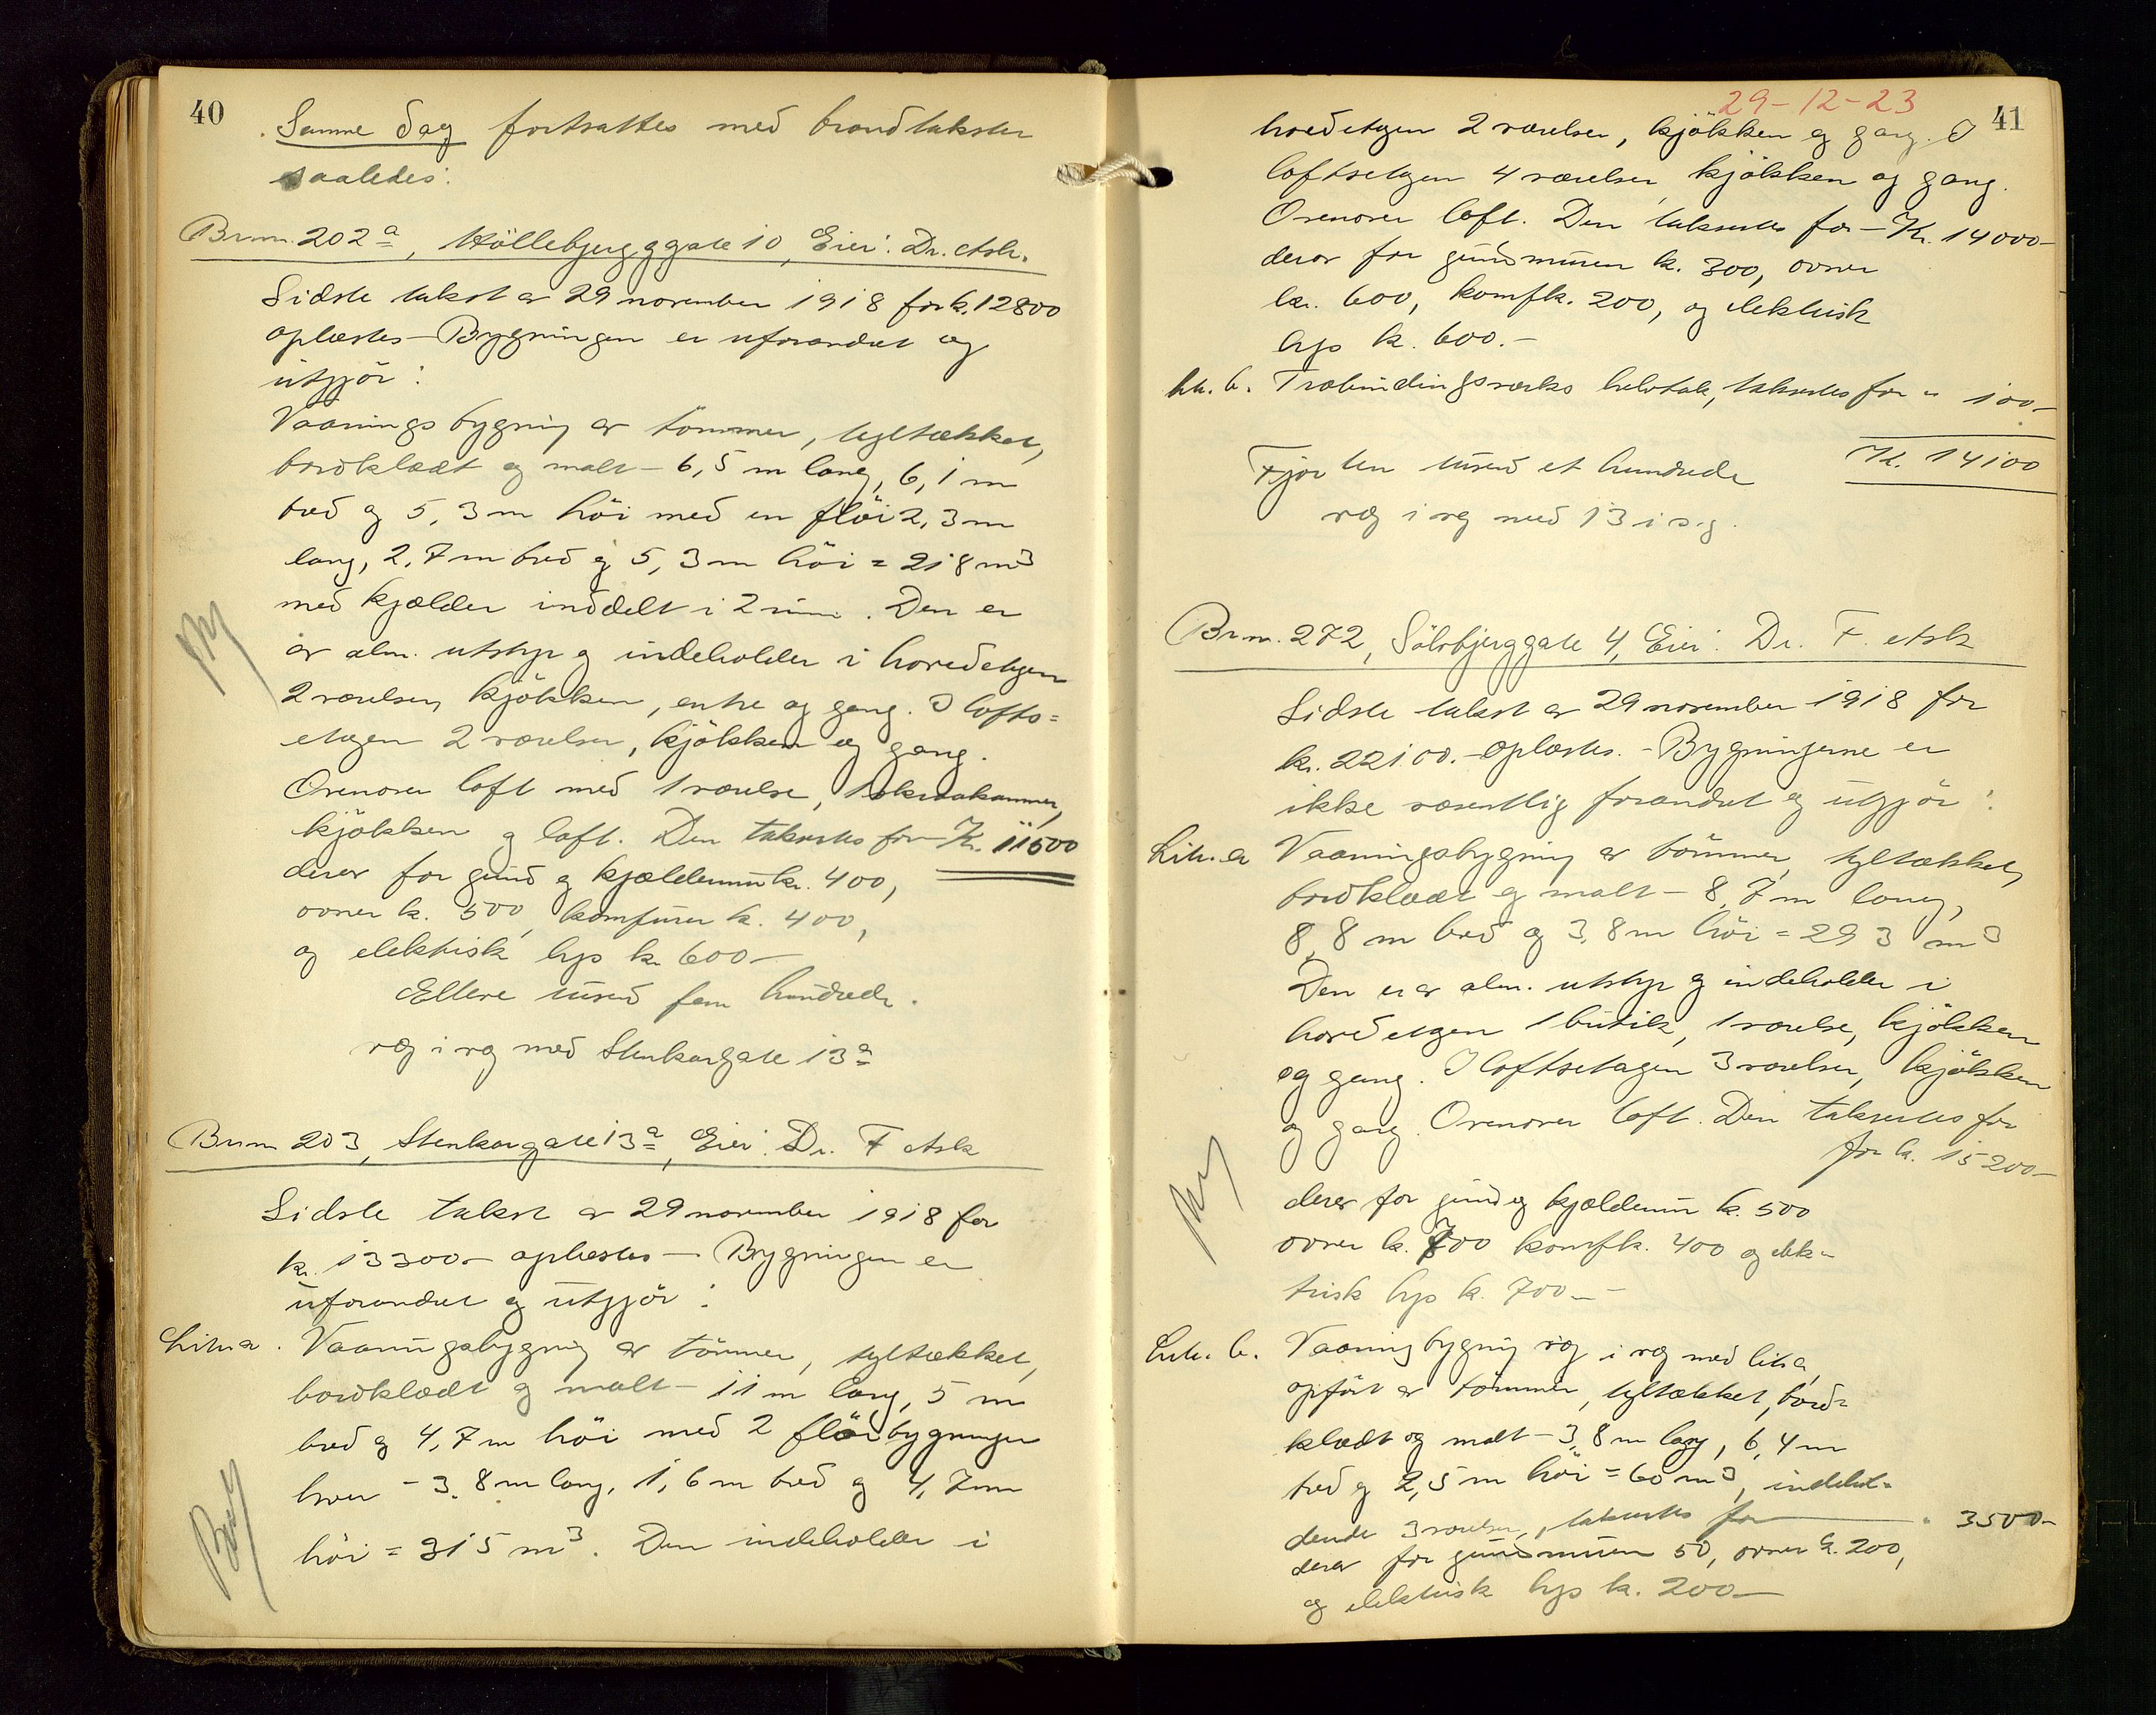 40
Samme dag fortsattes med brandtakster
saaledes:
Brnr. 202a, Höllebjerggate 10, Eier: Dr. Ask.
Sidste takst av 29 november 1918 for k. 12800
oplæstes – Bygningen er uforandret og
utgjör:
Vaaningsbygning av tömmer, tegltækket,
bordklædt og malt – 6,5 m lang, 6,1 m
bred og 5,3 m höi med en flöi 2,3 m
lang, 2,7 m bred og 5,3 m höi = 218 m3
med kjælder inddelt i 2 rum. Den er
av alm. utstyr og indeholder i hovedetagen
2 værelser, kjökken, entre og gang. I lofts=
etagen 2 værelser, kjökken og gang.
Ovenover loft med 1 værelse, 1 skraakammer,
kjökken og loft. Den takseres for – Kr. 11500
derav for grund og kjældermur kr. 400,
ovner k. 500, komfurer k. 400,
og elektrisk lys kr 600 –
Elleve tusend fem hundrede.
væg i væg med Stenkargate 13a
Brnr 203, Stenkargate 13a, Eier: Dr. F Ask
Sidste takst av 29 november 1918 for
kr. 13300 – oplæstes – Bygningen er
uforandret og utgjör:
Litr. a. Vaaningsbygning av tömmer, tegltækket,
bordklædt og malt – 11 m lang, 5 m
bred og 4,7 m höi med 2 flöibygninger
hver – 3,8 m lang, 1,6 m bred og 4,7 m
höi = 315 m3. Den indeholder i
29-12-23
41
hovedetagen 2 værelser, kjökken og gang. I
loftsetagen 4 værelser, kjökken og gang.
Ovenover loft. Den takseres for – Kr. 14000 –
derav for grundmuren k. 300, ovner
kr. 600, komf k. 200, og elektrisk
lys k. 600. –
Litr. b. Træbindingsverks halvtak, takseres for " 100 –
Kr. 14100
Fjorten tusend et hundrede
væg i væg med 13 i s.g.
Brnr. 272, Sölvbjerggate 4, Eier: Dr. F. Ask
Sidste takst av 29 november 1918 for
kr. 22100. – oplæstes. – Bygningerne er
ikke væsentlig forandret og utgjör:
Litr. a Vaaningsbygning av tömmer, tegltækket,
bordklædt og malt – 8,7 m lang,
8,8 m bred og 3,8 m höi = 293 m3
Den er av alm. utstyr og indeholder i
hovedetagen 1 butik, 1 værelse, kjökken
og gang. I loftsetagen 3 værelser, kjökken
og gang. Ovenover loft. Den takseres for
for k. 15200 –
derav for grund og kjældermur k. 500
ovner k. 700 komf k. 400 og elek-
trisk lys k. 700 –
Litr. b. Vaaningsbygning væg i væg med litr a,
opfört av tömmer, tegltækket, bord=
klædt og malt – 3,8 m lang, 6,4 m
bred og 2,5 m höi = 60 m3, indehol=
dende 3 værelser, takseres for " 3500 –
derav for grundmuren 50, ovner k. 200,
og elektrisk lys k. 200 –